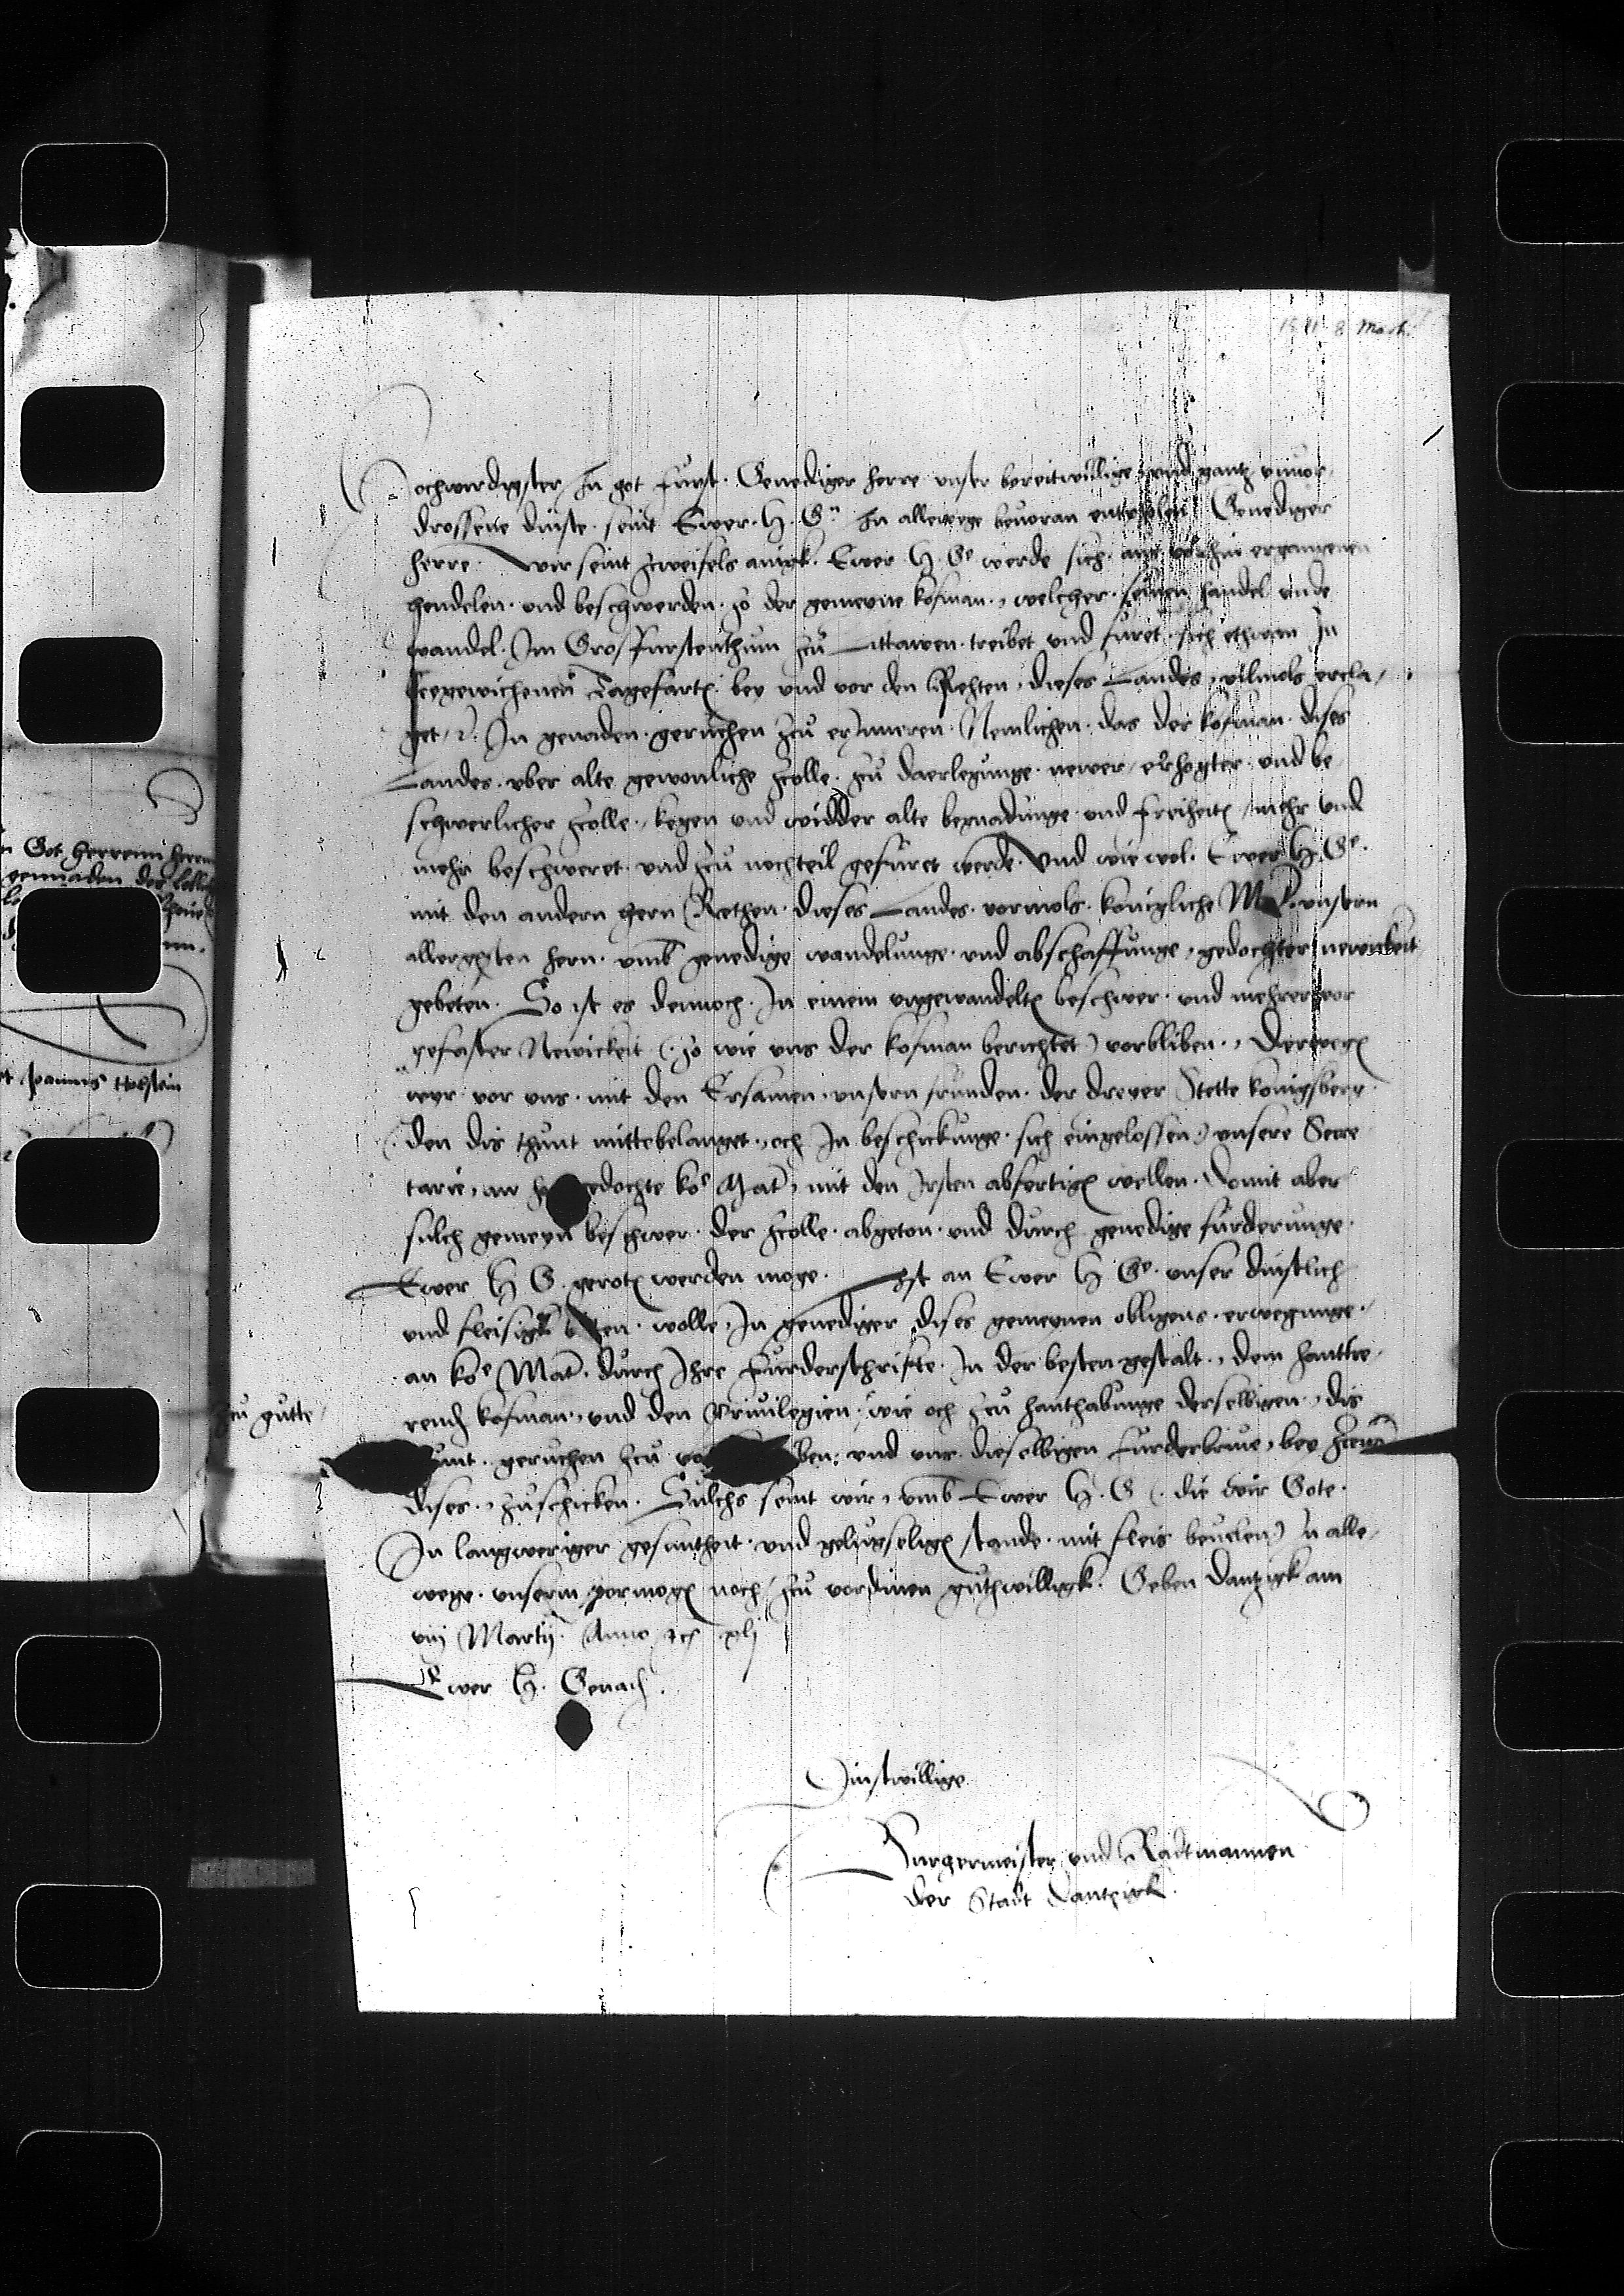 1541 8 Martii
Hochwirdigster In got furst. Genediger herre unser bereitwillige und gantz unvor
drossene dinste. seint Ewer. H. G. In allewege bevoran entpfolen Genediger
herre. Wir seint zweifels anigk. Ewer H. Ge werde sich aus vorhin ergangenen
hendelen. und beschwerden. so der gemeyne kofman., welcher. seinen handel unde
wandel. Im Grosfurstenthum zu Littawen. treibet und furet. sich etzwan In
gewichenen Tagefarten bey und vor den Rethen, dieses Landes, vilmols ercla,
get, In genaden. geruchen zcu erInneren. Nemlichen. das der kofman. dises
Landes. uber alte gewonliche zcolle. zcu daerlegunge. newer, erhogter. und be
schwerlicher zcolle, kegen und widder alte begnadunge und freiheiten, mehr und
mehr beschweret. und zcu nochteil gefuret werde. Und wie wol. Ewer H. Ge.
mit den andern hern Rethen. dieses Landes. vormols. konigliche Mat. unsern
allergnten hern. umb genedige wandelunge. und abschaffunge, gedochter newickeit
gebeten. So ist es dennoch. In einem ungewandelten beschwer. und mehrer vor
gefaster Newickeit (so wie uns der kofman berichtet) vorbliben., Derwegen
wyr vor uns. mit den Ersamen. unsern frunden. der dreyer Stette konigsberg.
(den dis thunt mittebelanget., och In beschickunge. sich eingelossen) unsere Secre
tarie, an edochte koe Mat, mit den Irsten abfertigen wellen. Domit aber
sulch gemeyn beschwer. der zcolle. abgeton. und durch genedige furderunge.
Ewer H G. geroten werden moge. Ist an Ewer H. Ge. unser dinstlich
und fleisigk biten. wolle, In genediger dises gemeynen obligens. erwegunge.
an koe Mat. durch Ihre furderschrifte. In der besten gestalt., dem hantte
renden kofman., und den Privilegien. wie och zcu hanthabunge derselbigen., dis
unt. geruchen zcu vor ben. und uns. dieselbigen furderbrive, bey
dises., zuschicken. Sulchs seint wir, umb Ewer H. G (. die wir Gote.
In langweriger gesuntheit. und gelugseligen stande. mit fleis bevelen) In alle,
wege. unserm vormogen noch, zcu vordinen gutwilligk. Geben Dantzigk am
viij Martij. Anno xli
Ewer H. Genaden.
Dinstwillige
Burgermeister und Radtmannen
der Stadt Dantzigk.
Got herrenn herrn
gennaden der
Joannis
zcu gutte